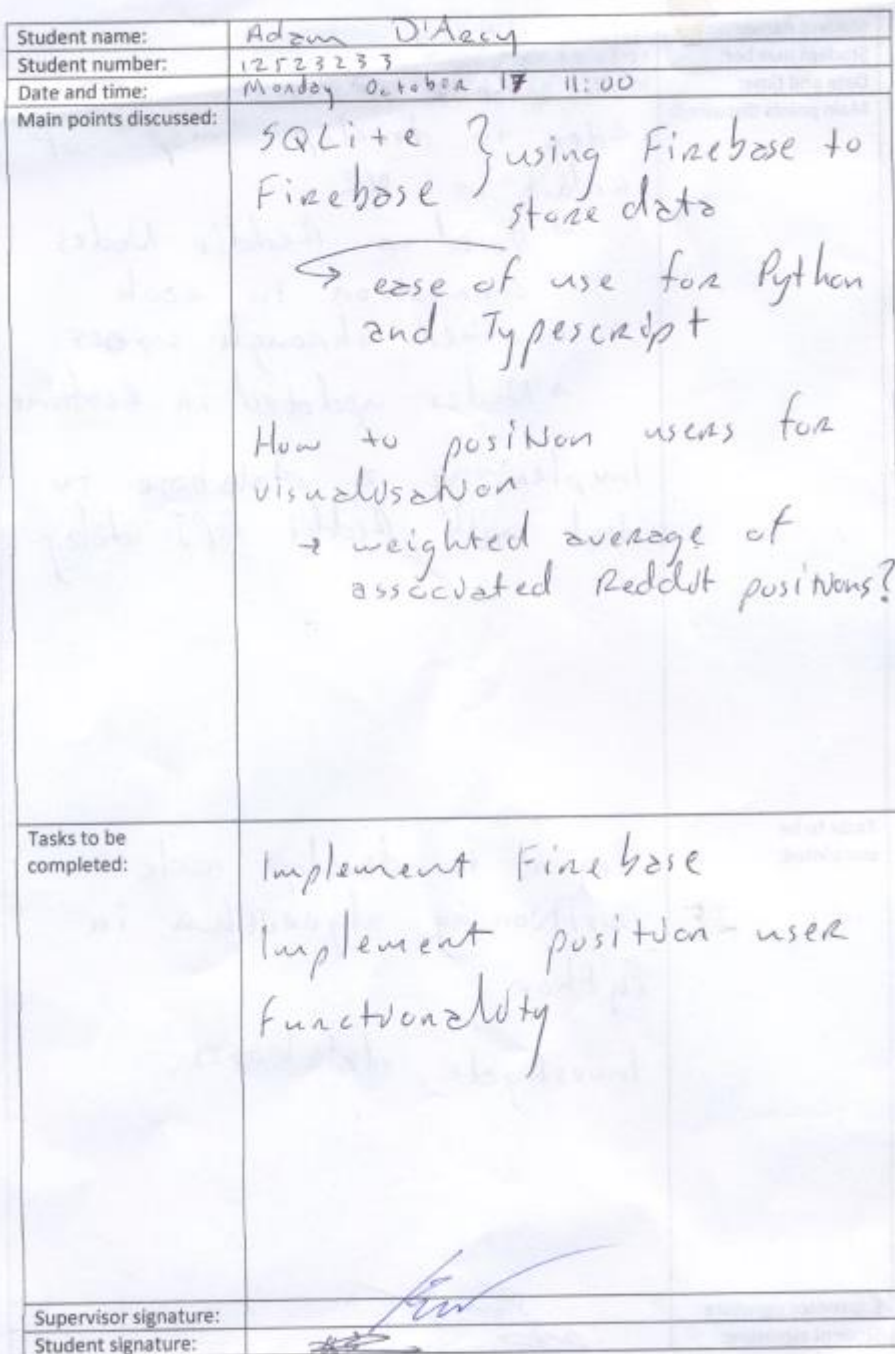 Student name: Adam D'Arcy
Student number: 12523233
Date and time: Monday October 17 11:00
Main points discussed:
SQLite } using Firebase to
Firebase store data
↪ ease of use for Python
and Typescript
How to position users for
visualisation
→ weighted average of
associated Reddit positions?
Tasks to be
completed:
Implement Firebase
Implement position user
functionality
Supervisor signature:
Student signature: